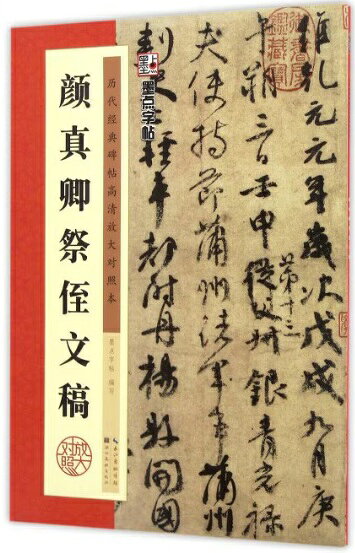 颜真卿祭侄文稿
历代经典碑帖高清放大对照本
墨点字帖 编写
长江出版传媒
湖北美术出版社
放大
对照
墨点
墨点字帖
維乾元元年歲次戊戌九月庚
午朔三日壬申第十三從父銀青光祿
夫使持節蒲州諸軍事蒲州
刺史輕車都尉丹楊縣開國